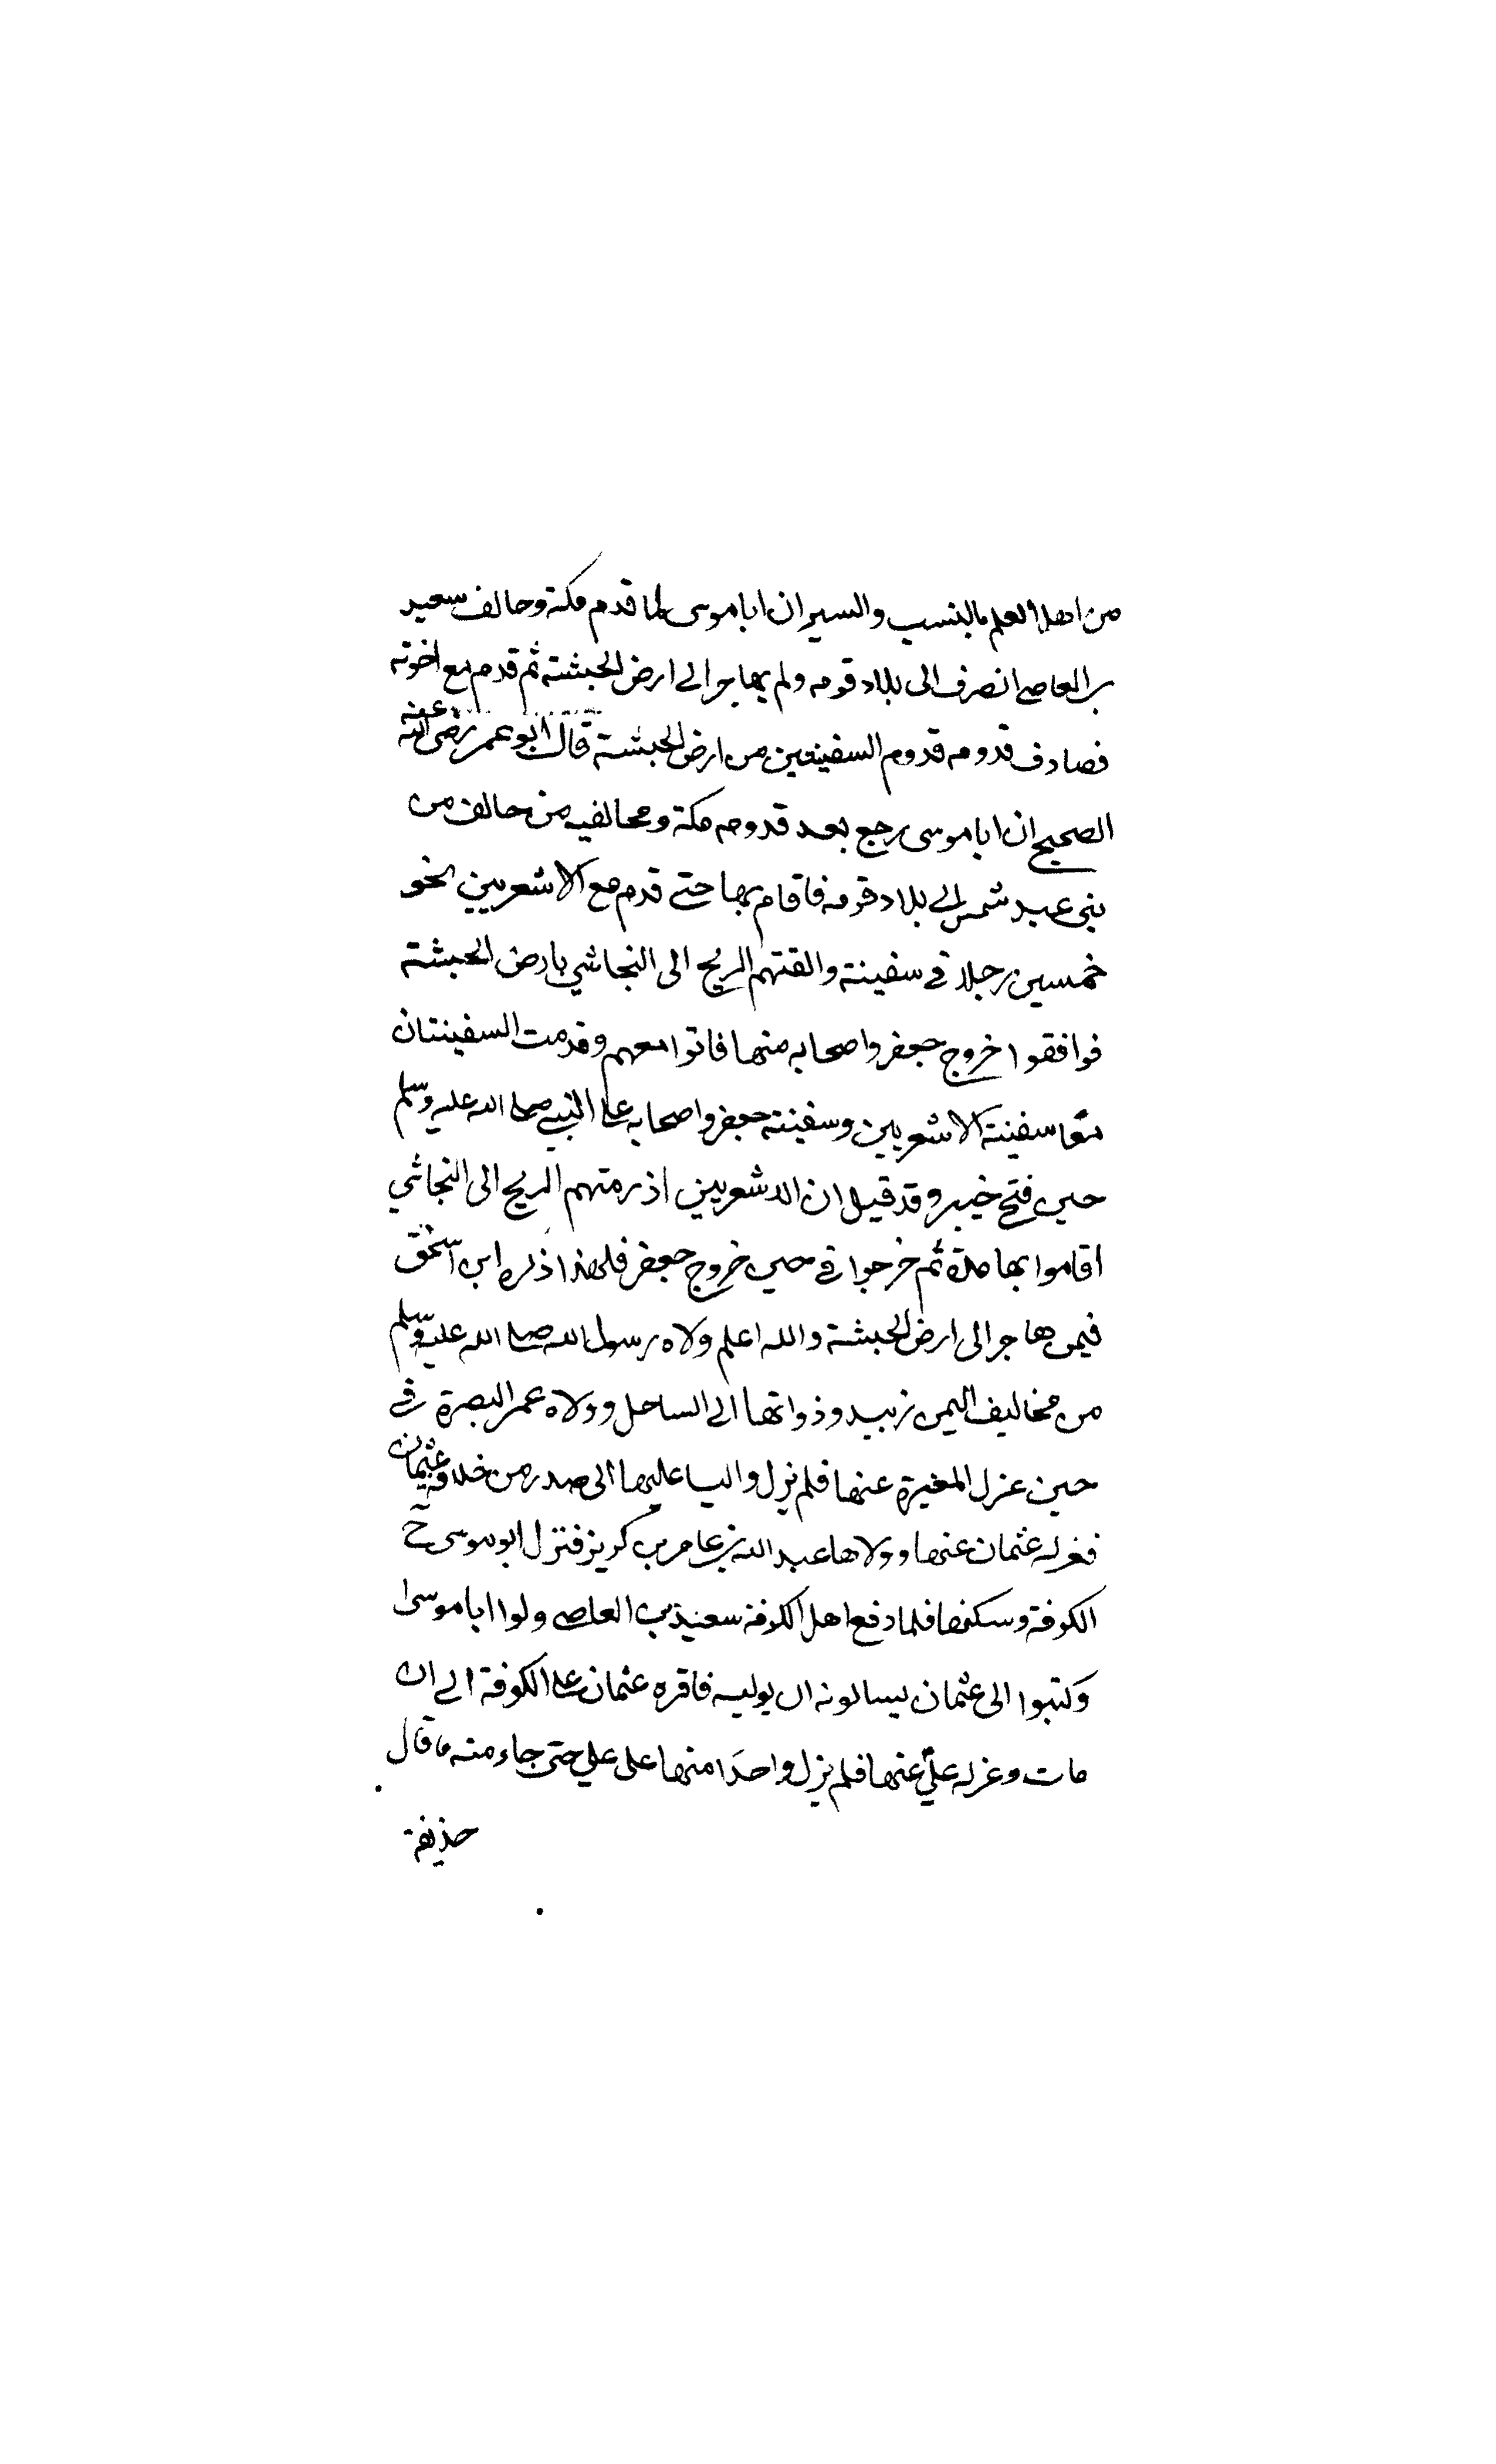 من اهل العلم بالنسب والسير ان ابا موسى لما قدم مكة وحالف سعيد
بن العاصي انصرف الى بلاد قومه ولم يهاجر الى ارض الحبشة ثم قدم مع اخوته
فصادف قدومه قدوم السفينتين من ارض الحبشة قال ابو عمر رضى الله عنه
الصحيح ان ابا موسى رجع بعد قدومه مكة ومحالفيه من حالف من
بنى عبد شمس الى بلاد قومه فاقام بها حتى قدم مع الاشعريين نحو
خمسين رجلا في سفينة والقتهم الريح الى النجاشي بارض الحبشة
فوافقوا خروج جعفر واصحابه منها فاتوا معهم وقدمت السفينتان
معًا سفينة الاشعريين وسفينة جعفر واصحابه على النبي صلى الله عليه وسلم
حين فتح خيبر وقد قيل ان الاشعريين اذ رمتهم الريح الى النجاشي
اقاموا بها مدة ثم خرجوا في حين خروج جعفر فلهذا ذكره ابن اسحق
فيمن هاجر الى ارض الحبشة والله اعلم ولاه رسول الله صلى الله عليه وسلم
من مخاليف اليمن زبيد وذواتها الى الساحل وولاه عمر البصرة في
حين عزل المغيرة عنها فلم يزل واليا عليها الى صدر من خلافة عثمان
فعزله عثمان عنها وولاها عبد الله بن عامر بن كريز فنزل ابو موسى ح
الكوفة وسكنها فلما دفع اهل الكوفة سعيد بن العاصي ولوا ابا موسى
وكتبوا الى عثمان يسالونه ان يوليه فاقره عثمان على الكوفة الى ان
مات وعزله عليّ عنها فلم يزل واحدًا منها على علي حتى جاء منه ما قال
حذيفة